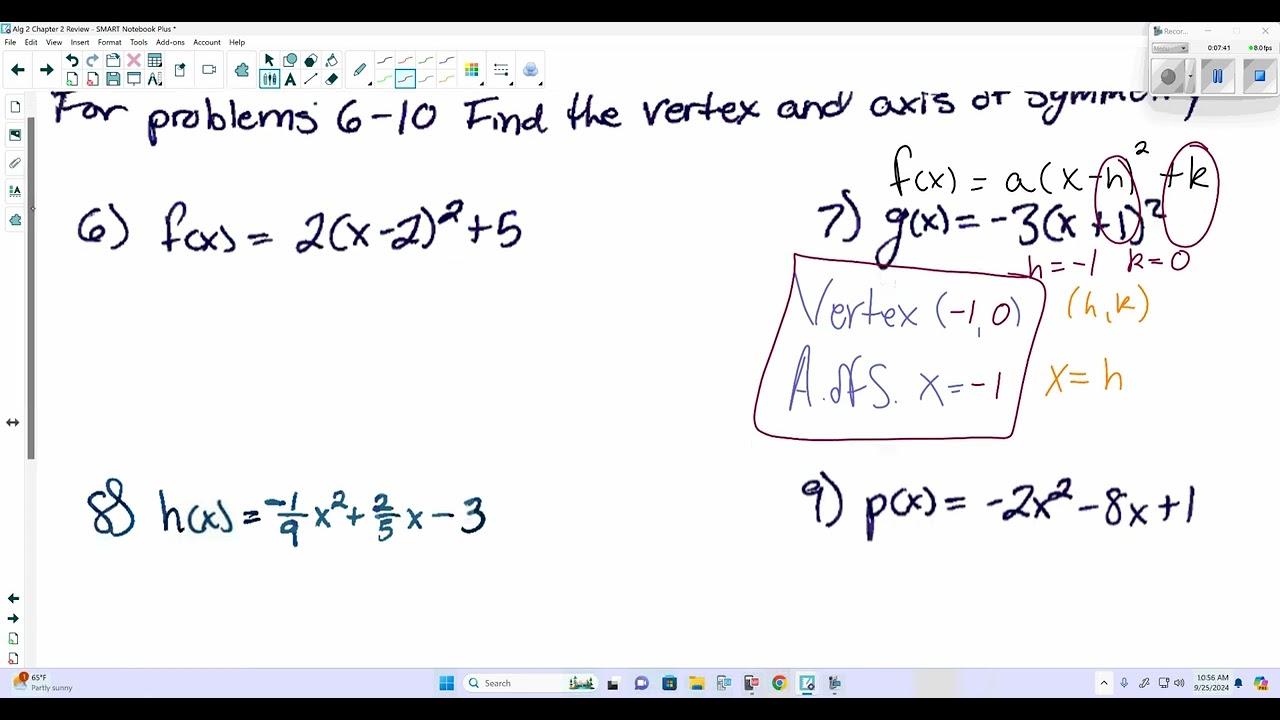 Alg 2 Chapter 2 Review - SMART Notebook Plus *
Recor...
File Edit View Insert Format Tools Add-ons Account Help
0:07:41
8.0 fps
For problems 6-10 Find the vertex and axis of symmetry
f(x) = a(x-h)² +k
6) f(x) = 2(x-2)²+5
7) g(x) = -3(x+1)²
h=-1 k=0
Vertex (-1,0)
(h,k)
A.ofS. x=-1
x=h
8) h(x) = -1/9 x²+ 2/5 x-3
9) p(x) = -2x²-8x+1
1
65°F
Partly sunny
Search
10:56 AM
9/25/2024